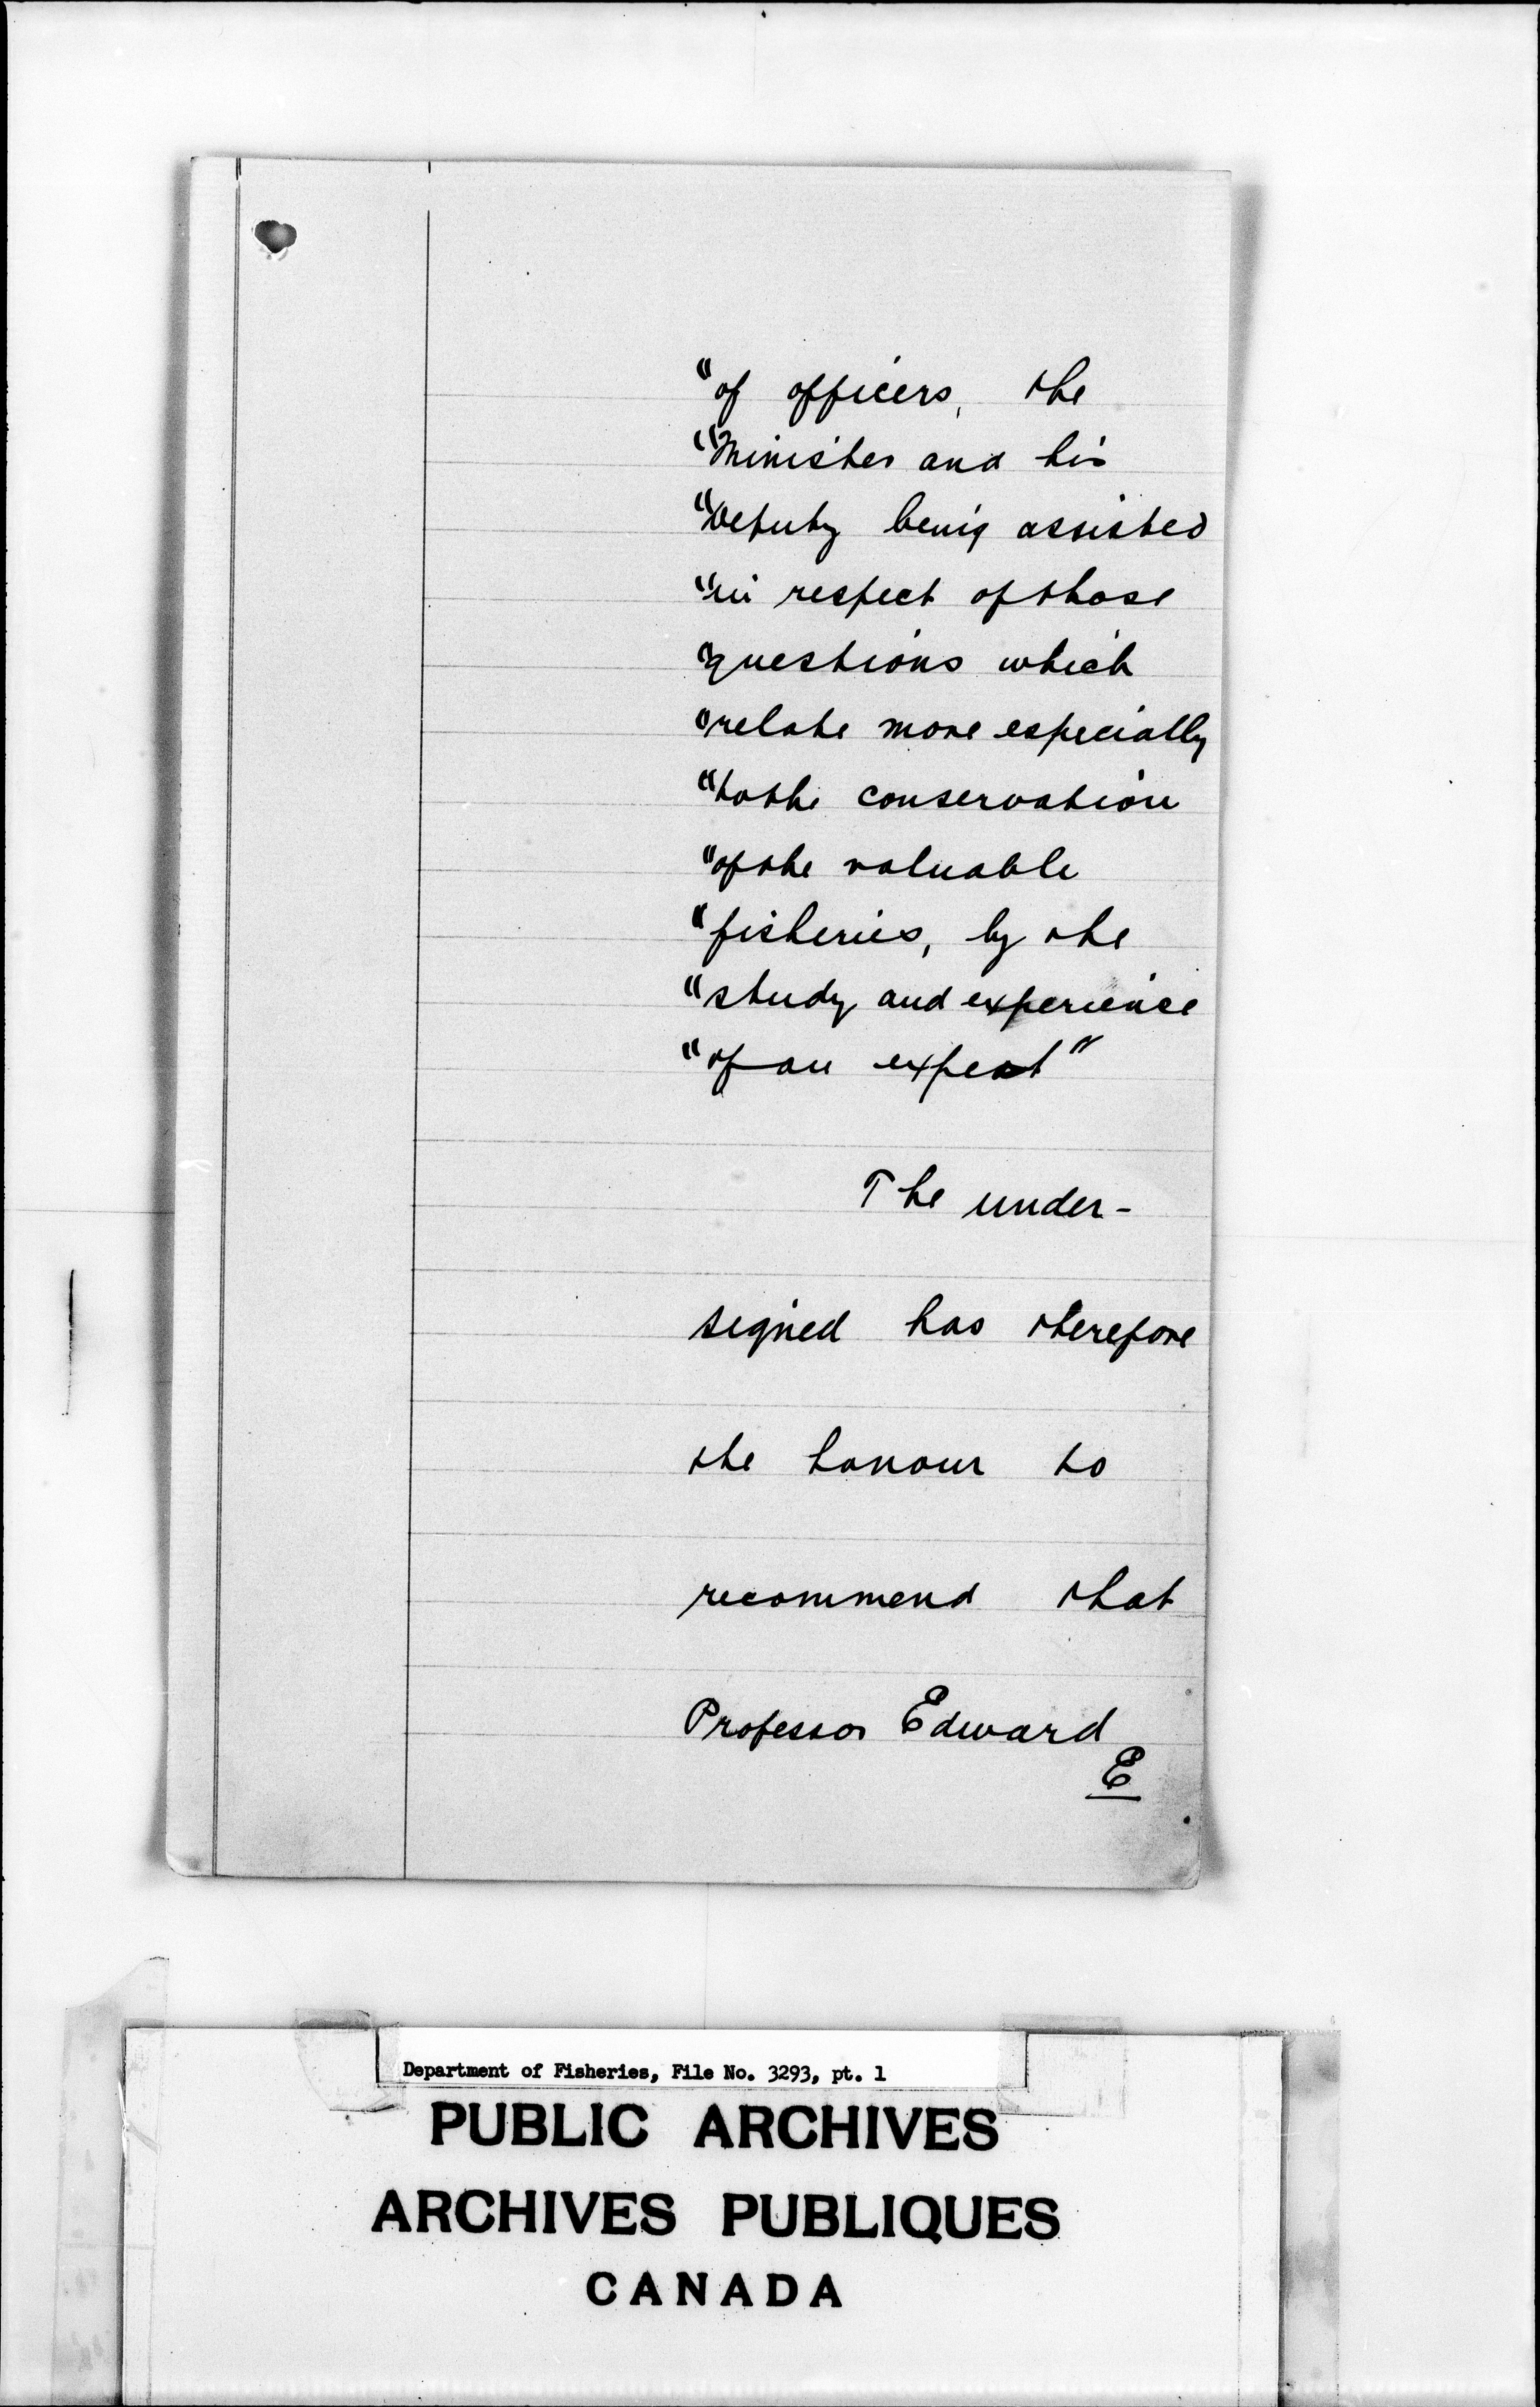 "of officers, the
"Minister and his
"Deputy being assisted
"in respect of those
"questions which
"relate more especially
"to the conservation
"of the valuable
"fisheries, by the
"study and experience
"of an expert"
The under-
signed has therefore
the honour to
recommend that
Professor Edward
E
Department of Fisheries, File No. 3293, pt. 1
PUBLIC ARCHIVES
ARCHIVES PUBLIQUES
CANADA